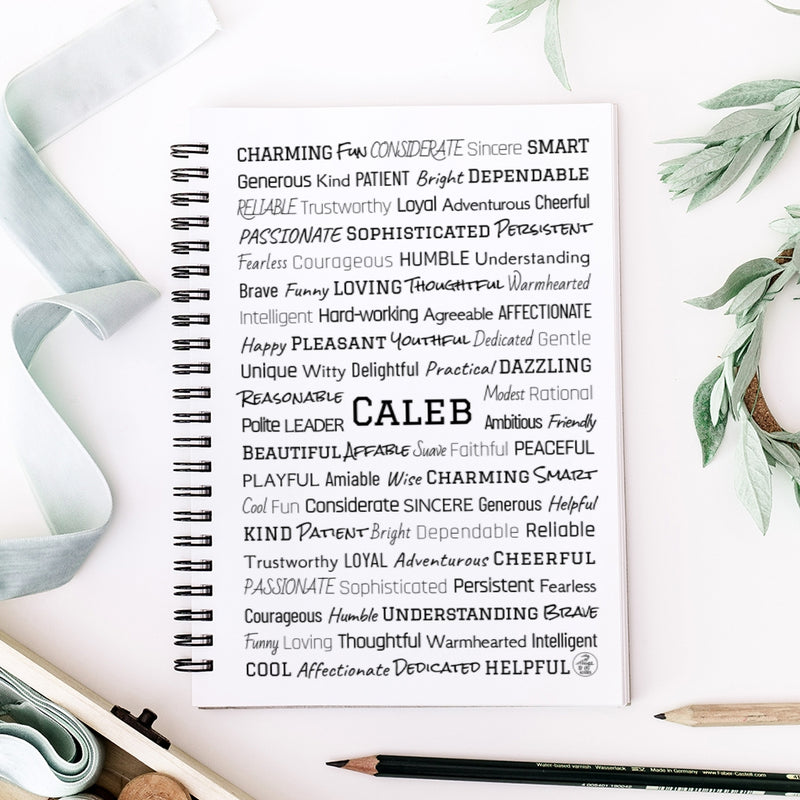 CHARMING Fun CONSIDERATE Sincere SMART
Generous Kind PATIENT Bright DEPENDABLE
RELIABLE Trustworthy Loyal Adventurous Cheerful
PASSIONATE SOPHISTICATED PERSISTENT
Fearless Courageous HUMBLE Understanding
Brave Funny LOVING THOUGHTFUL Warmhearted
Intelligent Hard-working Agreeable AFFECTIONATE
Happy PLEASANT YOUTHFUL Dedicated Gentle
Unique Witty Delightful Practical DAZZLING
REASONABLE Modest Rational
CALEB
Polite LEADER Ambitious Friendly
BEAUTIFUL AFFABLE Suave Faithful PEACEFUL
PLAYFUL Amiable Wise CHARMING SMART
Cool Fun Considerate SINCERE Generous Helpful
KIND PATIENT Bright Dependable Reliable
Trustworthy LOYAL Adventurous CHEERFUL
PASSIONATE Sophisticated Persistent Fearless
Courageous Humble UNDERSTANDING BRAVE
Funny Loving Thoughtful Warmhearted Intelligent
COOL Affectionate DEDICATED HELPFUL
Water-based varnish Wasserlack Made in Germany www.Faber-Castell.com